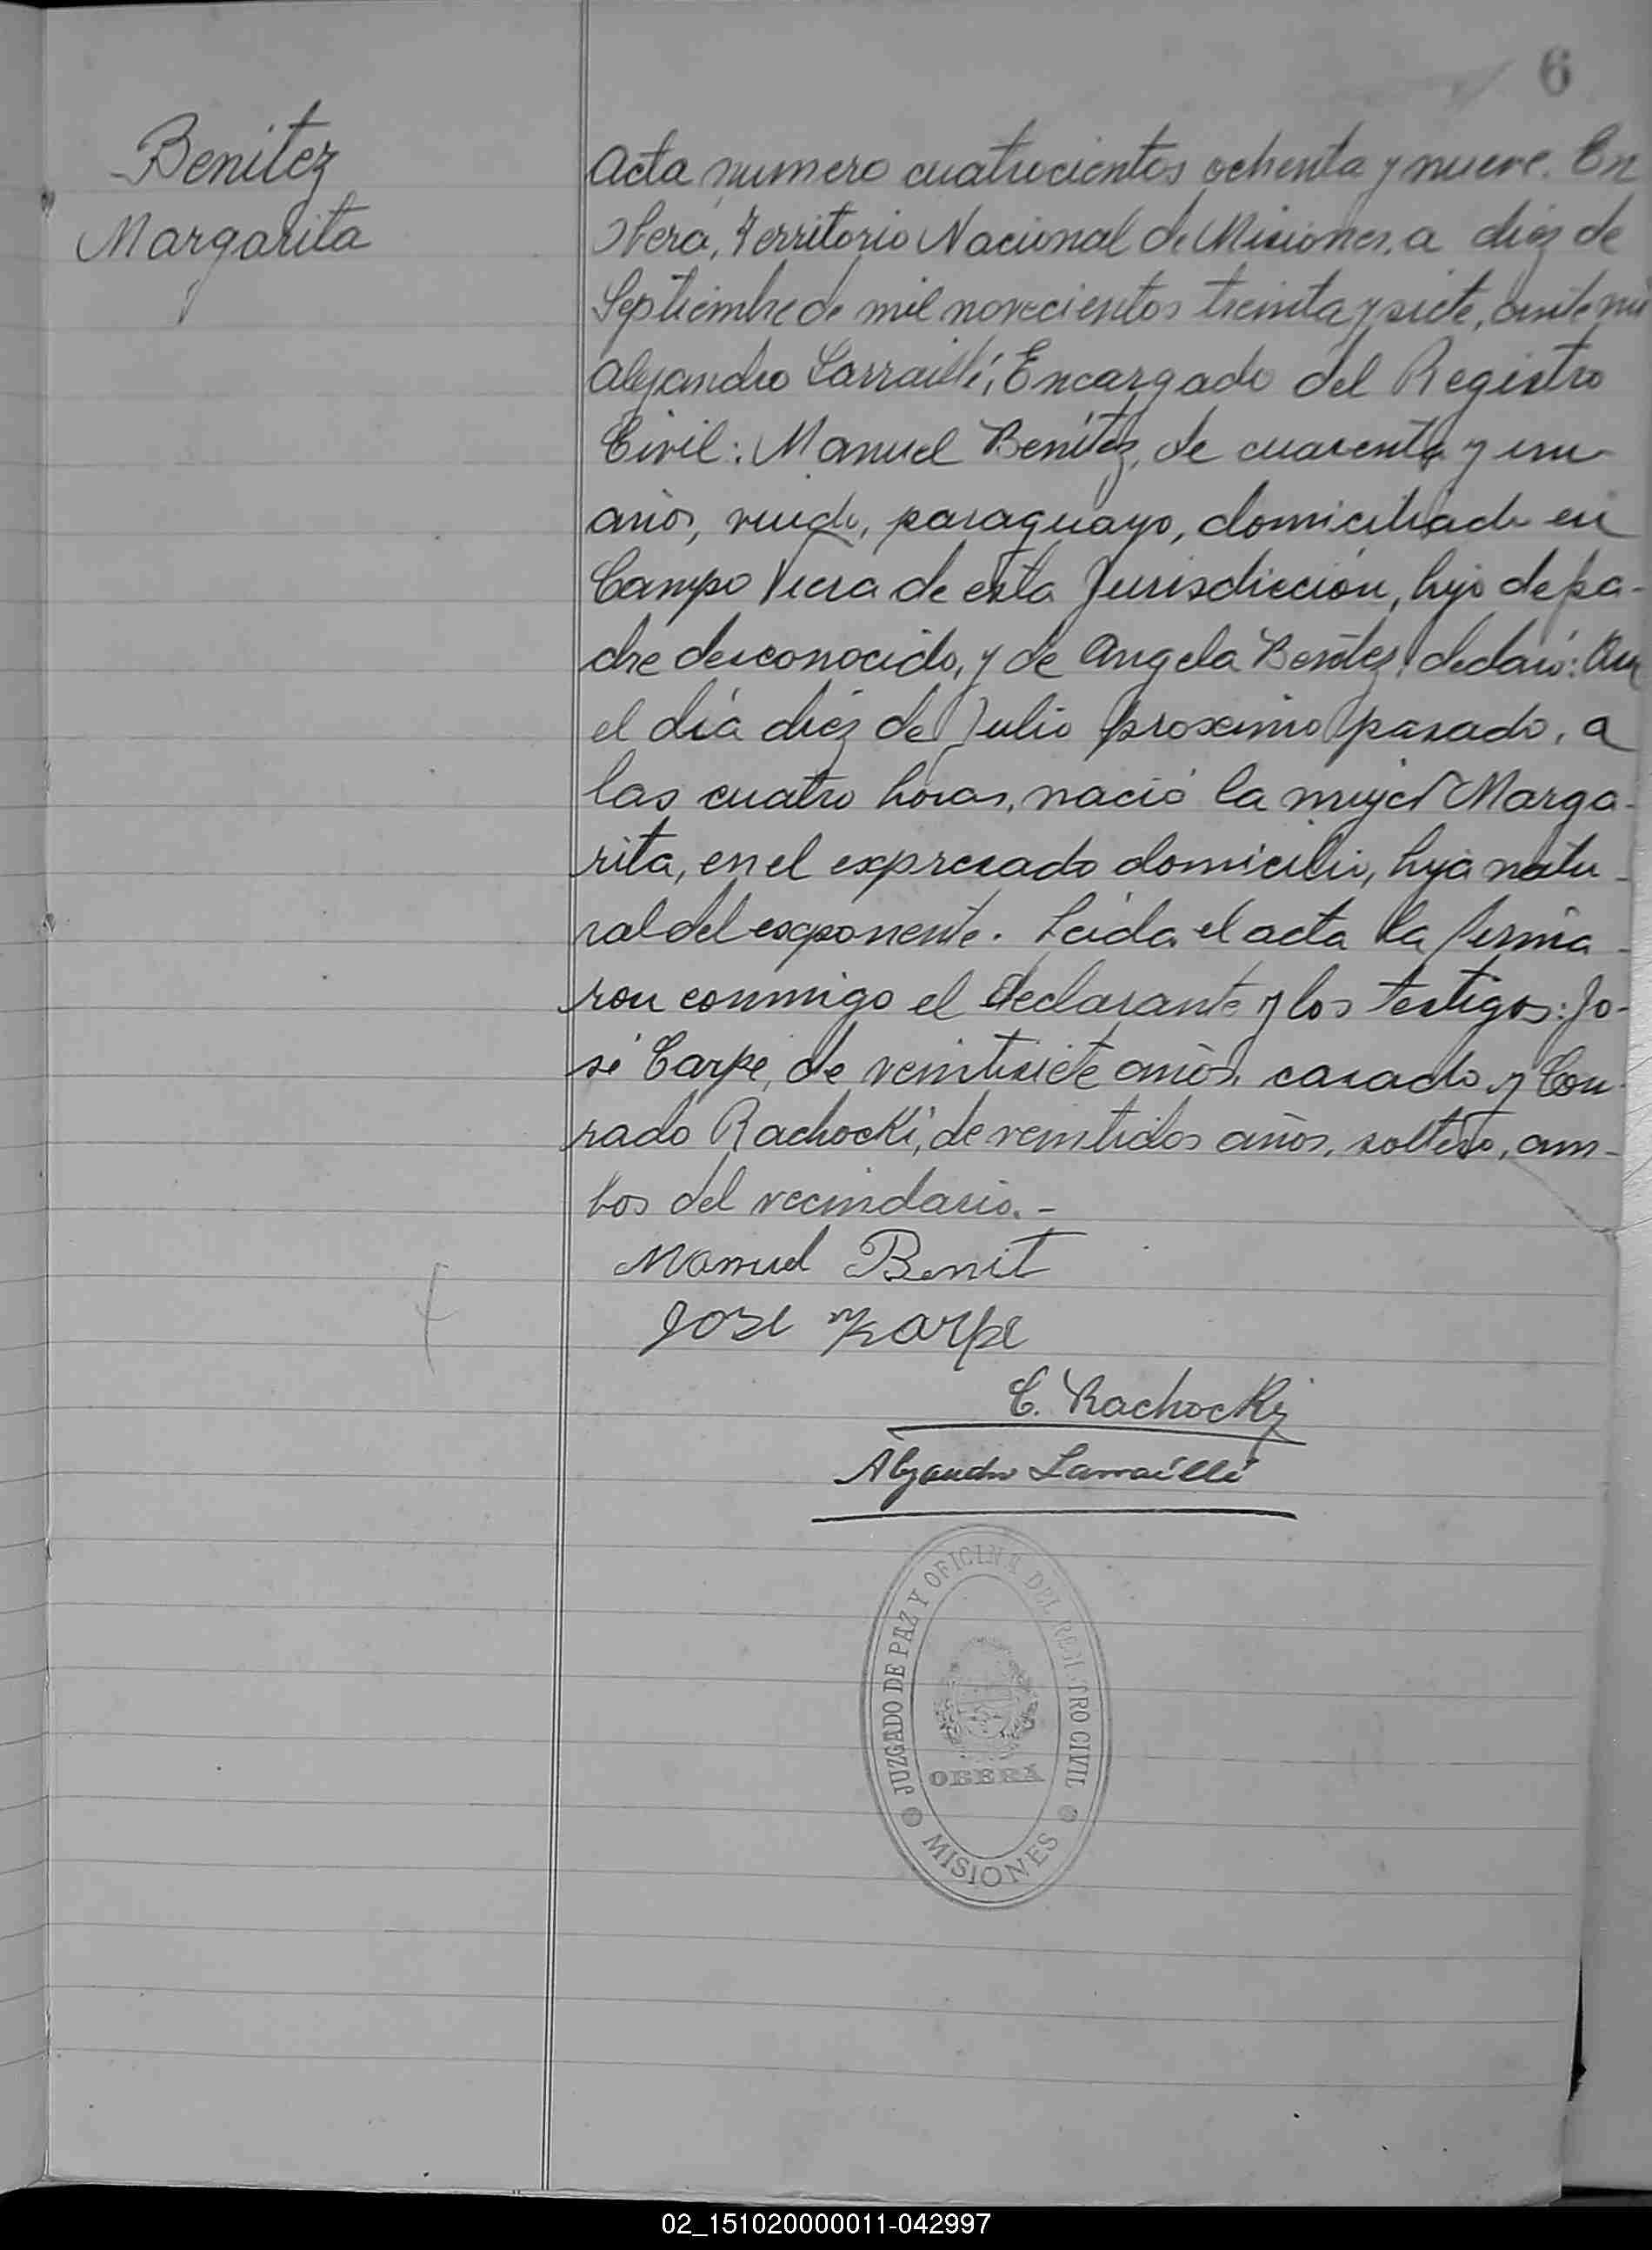 6
Benitez
Margarita
Acta numero cuatrocientos ochenta y nueve. En
Oberá, Territorio Nacional de Misiones, a diez de
Septiembre de mil novecientos treinta y siete, ante mi
Alejandro Larraillé, Encargado del Registro
Civil: Manuel Benitez, de cuarenta y un
años, viudo, paraguayo, domiciliado en
Campo Viera de esta Jurisdicción, hijo de pa-
dre desconocido, y de Angela Benitez, declaró: Que
el día diez de Julio proximo pasado, a
las cuatro horas, nació la mujer Marga-
rita, en el expresado domicilio, hija natu-
ral del exponente. Leida el acta la firma-
ron conmigo el declarante y los testigos: Jo-
sé Carpe, de veintisiete años, casado y Con-
rado Rachocki, de veintidos años, soltero, am-
bos del vecindario.-
Manuel Benit
Jose Karpe
C. Rachocki
Alejandro Larraillé
JUZGADO DE PAZ Y OFICINA DEL REGISTRO CIVIL
OBERÁ
MISIONES
02_151020000011-042997